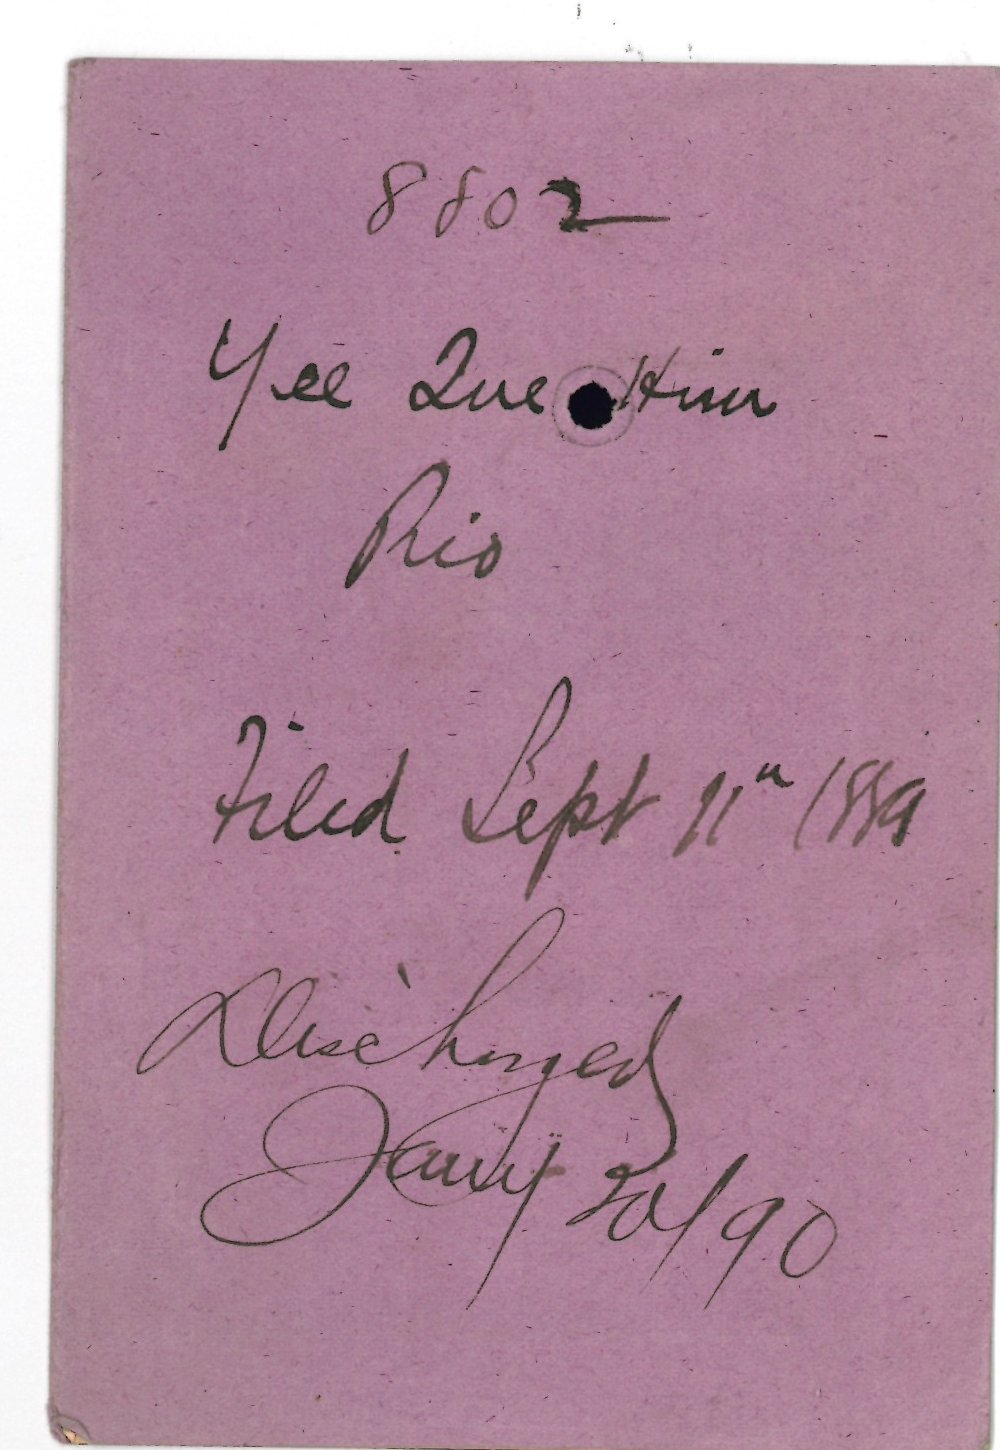 8802
Yee Que Him
Rio
Filed Sept 11th 1889
Discharged
Jany 20/90